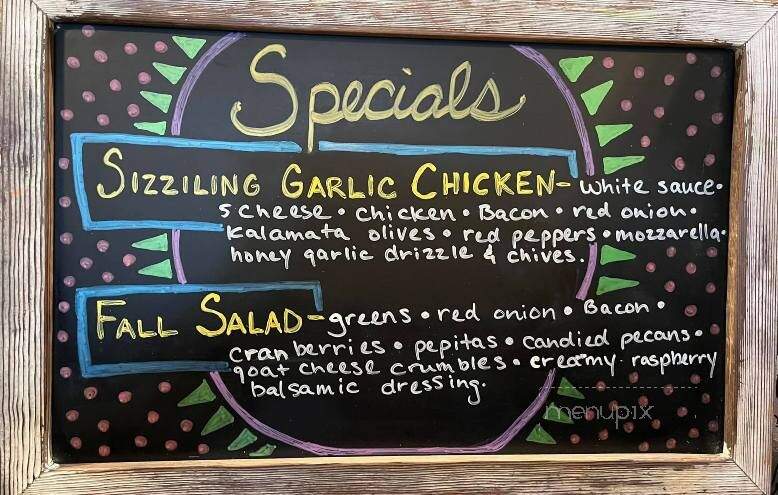 Specials
SIZZILING GARLIC CHICKEN- white sauce •
5 cheese • chicken • Bacon • red onion •
Kalamata olives • red peppers • mozzarella •
honey garlic drizzle & chives.
FALL SALAD - greens • red onion • Bacon •
cranberries • pepitas • candied pecans •
goat cheese crumbles • creamy raspberry
balsamic dressing.
menupix